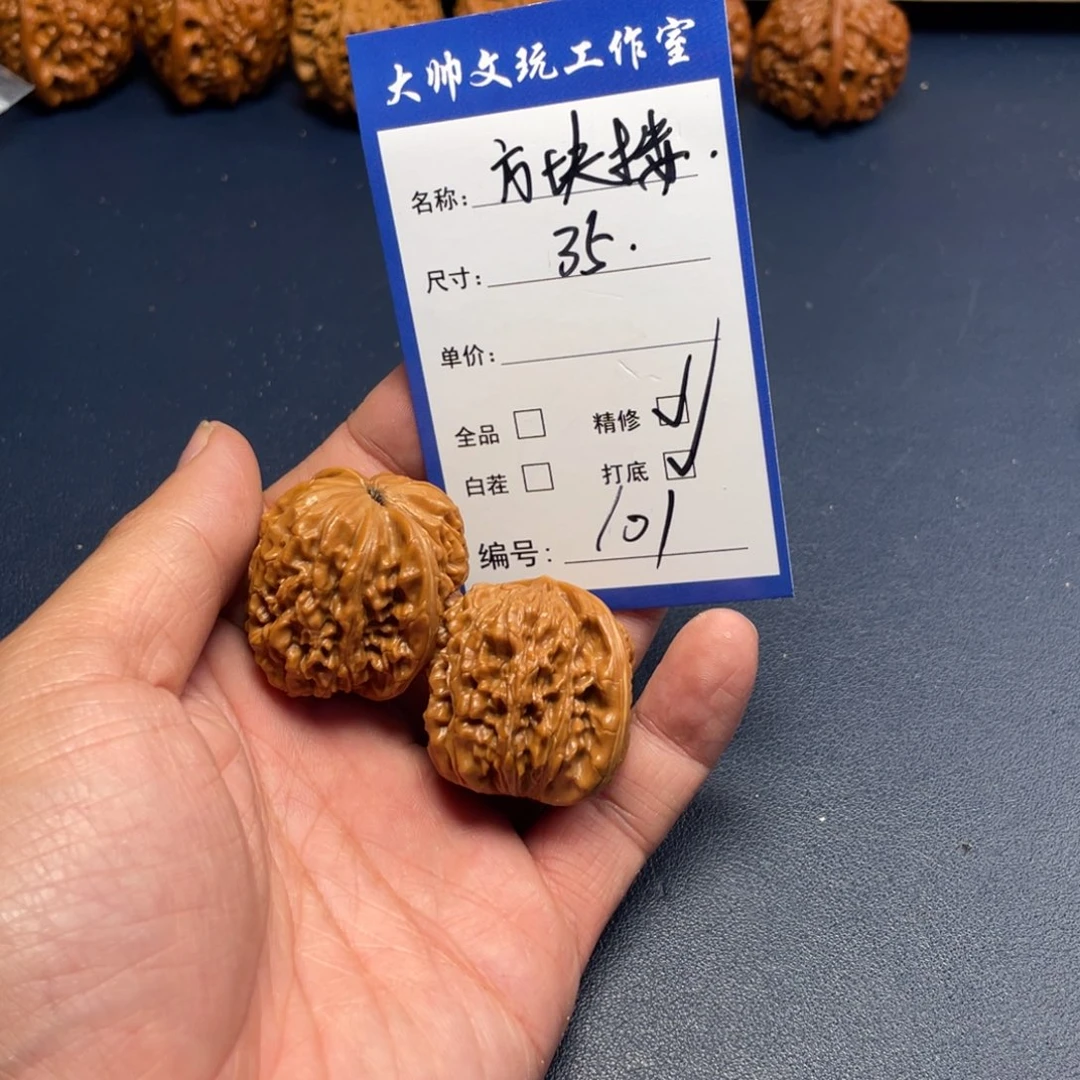 大帅文玩工作室
名称: 方块搂.
尺寸: 35.
单价:
全品 □ 精修 ☑
白茬 □ 打底 ☑
编号: 101